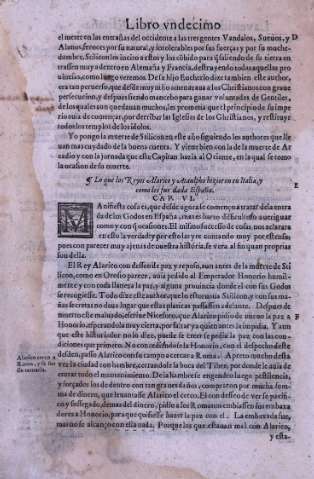 Libro vndecimo
el meter en las entrañas del occidente a las tres gentes Vandalos, Sueuos, y
Alanos, feroces por su natural, y intolerables por sus fuerças y por su muche-
dumbre, Stilicon los incito a esto y los cõbido para q̃ saliendo de su tierra en
trassen muy adentro en Alemaña y Francia, destruyendo todas aquellas pro
uincias, como luego veremos. De su hijo Eucherio dize tambien este author,
era tan peruerso, que desde muy niño amenazaua a los Christianos con graue
persecucion, y despues siendo mancebo para ganar voluntades de Gentiles,
de los quales aun quedauan muchos, les prometia que el principio de su impe-
rio auia de començar, por derribar las Iglesias de los Christianos, y restituyr
todos los templos de los idolos.
Yo pongo la muerte de Stilicon en este año siguiendo los authores que lle
uan mas cuydado de la buena cuenta. Y viene bien con la de la muerte de Ar
cadio y con la jornada que este Capitan hazia al Oriente, en la qual se tomo
la ocasion de su muerte.
¶ Lo que los Reyes Alarico y Ataulpho hizieron en Italia, y
como les fue dada España.
CAP. VI.
Manifiesta cosa es, que desde agora se comença a tratar de la en
trada de los Godos en España, mas es harto dificultoso aueriguar
como y con q̃ ocasion. El mismo sucesso de cosas, nos aclarara
en esto la verdad: y por esto las yre contando muy por estenso,
pues con parecer muy ajenas de nuestra historia, se vera al fin quan proprias
son della.
El Rey Alarico con desseo de paz y reposo, aun antes de la muerte de Sti
licon, como en Orosio parece, auia pedido al Emperador Honorio humilde
mente y con toda llaneza la paz, y alguna prouincia donde el con sus Godos
se recogiesse. Todo dize este author, que lo estoruaua Stilicon, y con sus ma-
ñas secretas no daua lugar que estas platicas passassen adelante. Despues de
muerto este maluado, escriue Nicephoro, que Alarico pidio de nueuo la paz a
Honorio,
dicíones que primero. No
desden, passo Alarico con su campo a cercar a Roma. Apreto mucho desta
vez la ciudad con hambre, cerrandole la boca del Tibre, por donde le auia de
entrar todo el mantenimiento. De la hambre se engendro luego pestilencia,
y forçados los de dentro con tan graues daños, compraron por mucha suma
de dinero, que leuantasse Alarico el cerco. El con desseo de ver se pacifi-
co y sossegado, demas del dinero, pidio a los Romanos embiassen sus embaxa
dores a Honorio, para que quisiesse hazer la paz con el. La embaxada fue,
mas no se alcanço con ella nada. Porque los que estauan mal con Alarico,
y esta-
Alarico cerca a
Roma, y
D
E
F